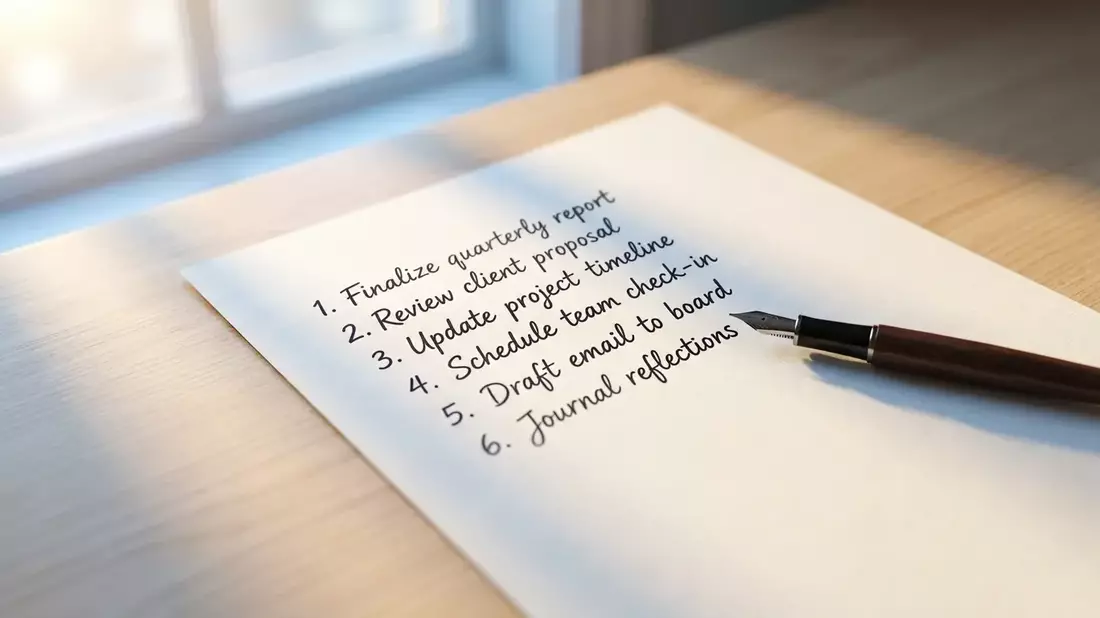 1. Finalize quarterly report
2. Review client proposal
3. Update project timeline
4. Schedule team check-in
5. Draft email to board
6. Journal reflections